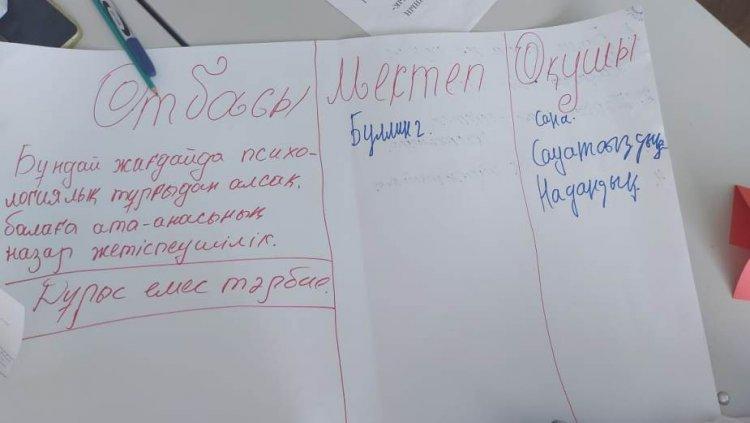 Отбасы
Бұндай жағдайда психо-
логиялық тұрғыдан алсақ.
балаға ата-анасының
назар жетіспеушілік.
Дұрыс емес тәрбие.
Мектеп
Буллинг.
Оқушы
Сана.
Сауатсыздық
Надандық.